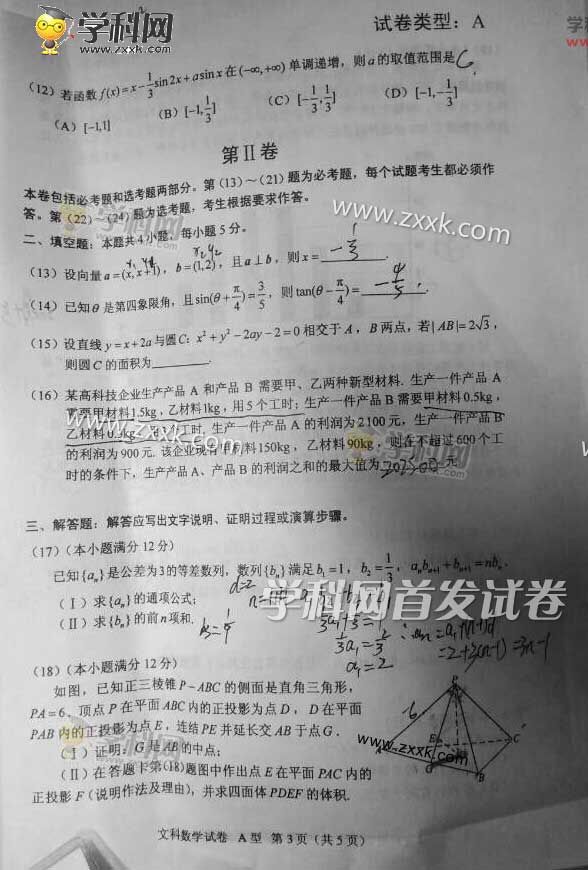 学科网
www.zxxk.com
试卷类型：A
(12) 若函数 f(x)=x-\frac{1}{3}sin2x+asinx 在 (-∞,+∞) 单调递增，则a的取值范围是 C
(A) [-1,1]    (B) [-1,\frac{1}{3}]    (C) [-\frac{1}{3},\frac{1}{3}]    (D) [-1,-\frac{1}{3}]
第Ⅱ卷
本卷包括必考题和选考题两部分。第（13）～（21）题为必考题，每个试题考生都必须作
答。第（22）～（24）题为选考题，考生根据要求作答。
学科网
www.zxxk.com
二、填空题：本题共4小题，每小题5分。
(13) 设向量 a=(x, x+1)，b=(1,2)，且 a⊥b，则 x=
(14) 已知θ是第四象限角，且 sin(θ+\frac{π}{4})=\frac{3}{5}，则 tan(θ-\frac{π}{4})= -\frac{4}{5}.
(15) 设直线 y=x+2a 与圆C：x²+y²-2ay-2=0 相交于 A，B 两点，若|AB|=2√3，
则圆C的面积为________.
(16) 某高科技企业生产产品 A 和产品 B 需要甲、乙两种新型材料. 生产一件产品 A
需要甲材料1.5kg，乙材料1kg，用5个工时；生产一件产品 B 需要甲材料0.5kg，
乙材料0.3kg，用3个工时，生产一件产品 A 的利润为2100元，生产一件产品 B
的利润为900元. 该企业现有甲材料150kg，乙材料90kg，则在不超过600个工
时的条件下，生产产品A、产品B的利润之和的最大值为 元
学科网
www.zxxk.com
三、解答题：解答应写出文字说明、证明过程或演算步骤。
(17)（本小题满分12分）
已知{aₙ}是公差为3的等差数列，数列{bₙ}满足 b₁=1，b₂=\frac{1}{3}，aₙbₙ₊₁+bₙ₊₁=nbₙ.
(Ⅰ) 求{aₙ}的通项公式；
(Ⅱ) 求{bₙ}的前n项和.
学科网首发试卷
\frac{1}{3}a₁+\frac{1}{3}=1
\frac{1}{3}a₁=\frac{2}{3}
a₁=2
=2+3(n-1)=3n-1
(18)（本小题满分12分）
如图，已知正三棱锥P-ABC的侧面是直角三角形，
PA=6，顶点P在平面ABC内的正投影为点D，D在平面
PAB内的正投影为点E，连结PE并延长交AB于点G．
(Ⅰ) 证明：G是AB的中点；
(Ⅱ) 在答题卡第(18)题图中作出点E在平面PAC内的
正投影F（说明作法及理由)，并求四面体PDEF的体积.
P
6
A
E
D
C
G
B
学科网
www.zxxk.com
文科数学试卷 A型 第3页（共5页）